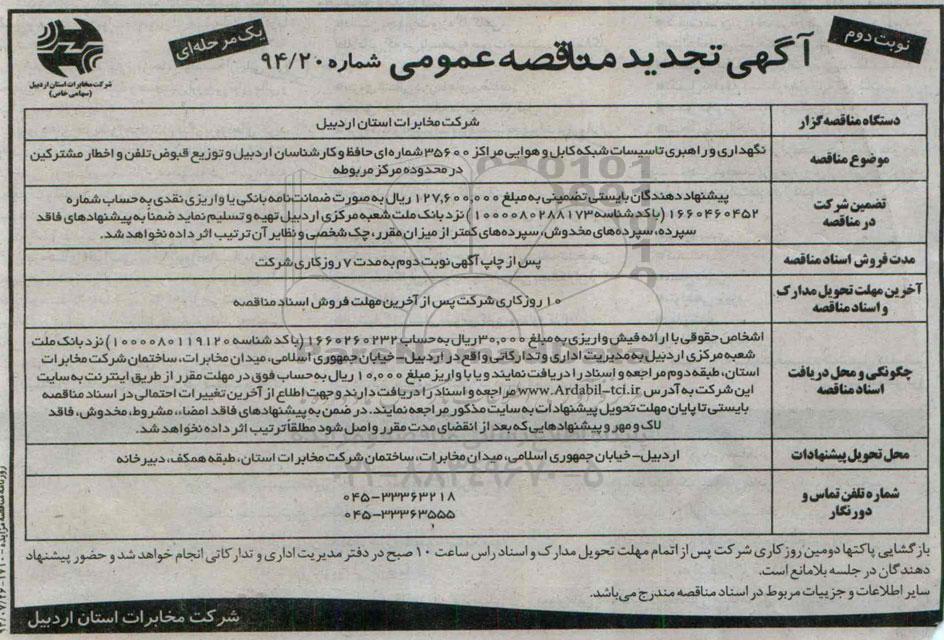 نوبت دوم
آگهی تجدید مناقصه عمومی شماره ۹۴/۲۰
یک مرحله‌ای
شرکت مخابرات استان اردبیل
(سهامی خاص)
دستگاه مناقصه‌گزار
شرکت مخابرات استان اردبیل
موضوع مناقصه
نگهداری و راهبری تاسیسات شبکه کابل و هوایی مراکز ۳۵۶۰۰ شماره‌ای حافظ و کارشناسان اردبیل و توزیع قبوض تلفن و اخطار مشترکین
در محدوده مرکز مربوطه
تضمین شرکت
در مناقصه
پیشنهاددهندگان بایستی تضمینی به مبلغ ۱۲۷,۶۰۰,۰۰۰ ریال به صورت ضمانت‌نامه بانکی یا واریزی نقدی به حساب شماره
۱۶۶۰۴۶۰۴۵۲ (با کد شناسه ۱۰۰۰۰۰۸۰۲۸۸۱۷۳) نزد بانک ملت شعبه مرکزی اردبیل تهیه و تسلیم نماید ضمناً به پیشنهادهای فاقد
سپرده، سپرده‌های مخدوش، سپرده‌های کمتر از میزان مقرر، چک شخصی و نظایر آن ترتیب اثر داده نخواهد شد.
مدت فروش اسناد مناقصه
پس از چاپ آگهی نوبت دوم به مدت ۷ روز کاری شرکت
آخرین مهلت تحویل مدارک
و اسناد مناقصه
۱۰ روز کاری شرکت پس از آخرین مهلت فروش اسناد مناقصه
چگونگی و محل دریافت
اسناد مناقصه
اشخاص حقوقی با ارائه فیش واریزی به مبلغ ۳۰,۰۰۰ ریال به حساب ۱۶۶۰۲۶۰۲۳۲ (با کد شناسه ۱۰۰۰۰۰۸۰۱۱۹۱۲۰) نزد بانک ملت
شعبه مرکزی اردبیل به مدیریت اداری و تدارکاتی واقع در اردبیل- خیابان جمهوری اسلامی، میدان مخابرات، ساختمان شرکت مخابرات
استان، طبقه دوم مراجعه و اسناد را دریافت نمایند و یا با واریز مبلغ ۱۰,۰۰۰ ریال به حساب فوق در مهلت مقرر از طریق اینترنت به سایت
این شرکت به آدرس www.Ardabil-tci.ir مراجعه و اسناد را دریافت دارند و جهت اطلاع از آخرین تغییرات احتمالی در اسناد مناقصه
بایستی تا پایان مهلت تحویل پیشنهادات به سایت مذکور مراجعه نمایند. در ضمن به پیشنهادهای فاقد امضاء، مشروط، مخدوش، فاقد
لاک و مهر و پیشنهادهایی که بعد از انقضای مدت مقرر واصل شود مطلقاً ترتیب اثر داده نخواهد شد.
محل تحویل پیشنهادات
اردبیل- خیابان جمهوری اسلامی، میدان مخابرات، ساختمان شرکت مخابرات استان، طبقه همکف، دبیرخانه
شماره تلفن تماس و
دورنگار
۰۴۵-۳۳۳۶۳۲۱۸
۰۴۵-۳۳۳۶۳۵۵۵
بازگشایی پاکتها دومین روز کاری شرکت پس از اتمام مهلت تحویل مدارک و اسناد راس ساعت ۱۰ صبح در دفتر مدیریت اداری و تدارکاتی انجام خواهد شد و حضور پیشنهاد
دهندگان در جلسه بلامانع است.
سایر اطلاعات و جزییات مربوط در اسناد مناقصه مندرج می‌باشد.
شرکت مخابرات استان اردبیل
۰۲۱-۸۸۳۴۹۶۷۰-۵